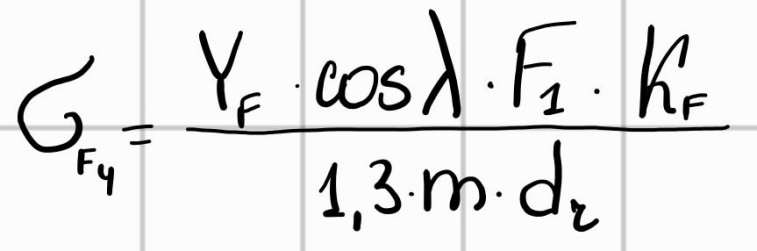 σ_{Fy} = \frac{Y_F · cosλ · F_1 · K_F}{1,3 · m · d_r}